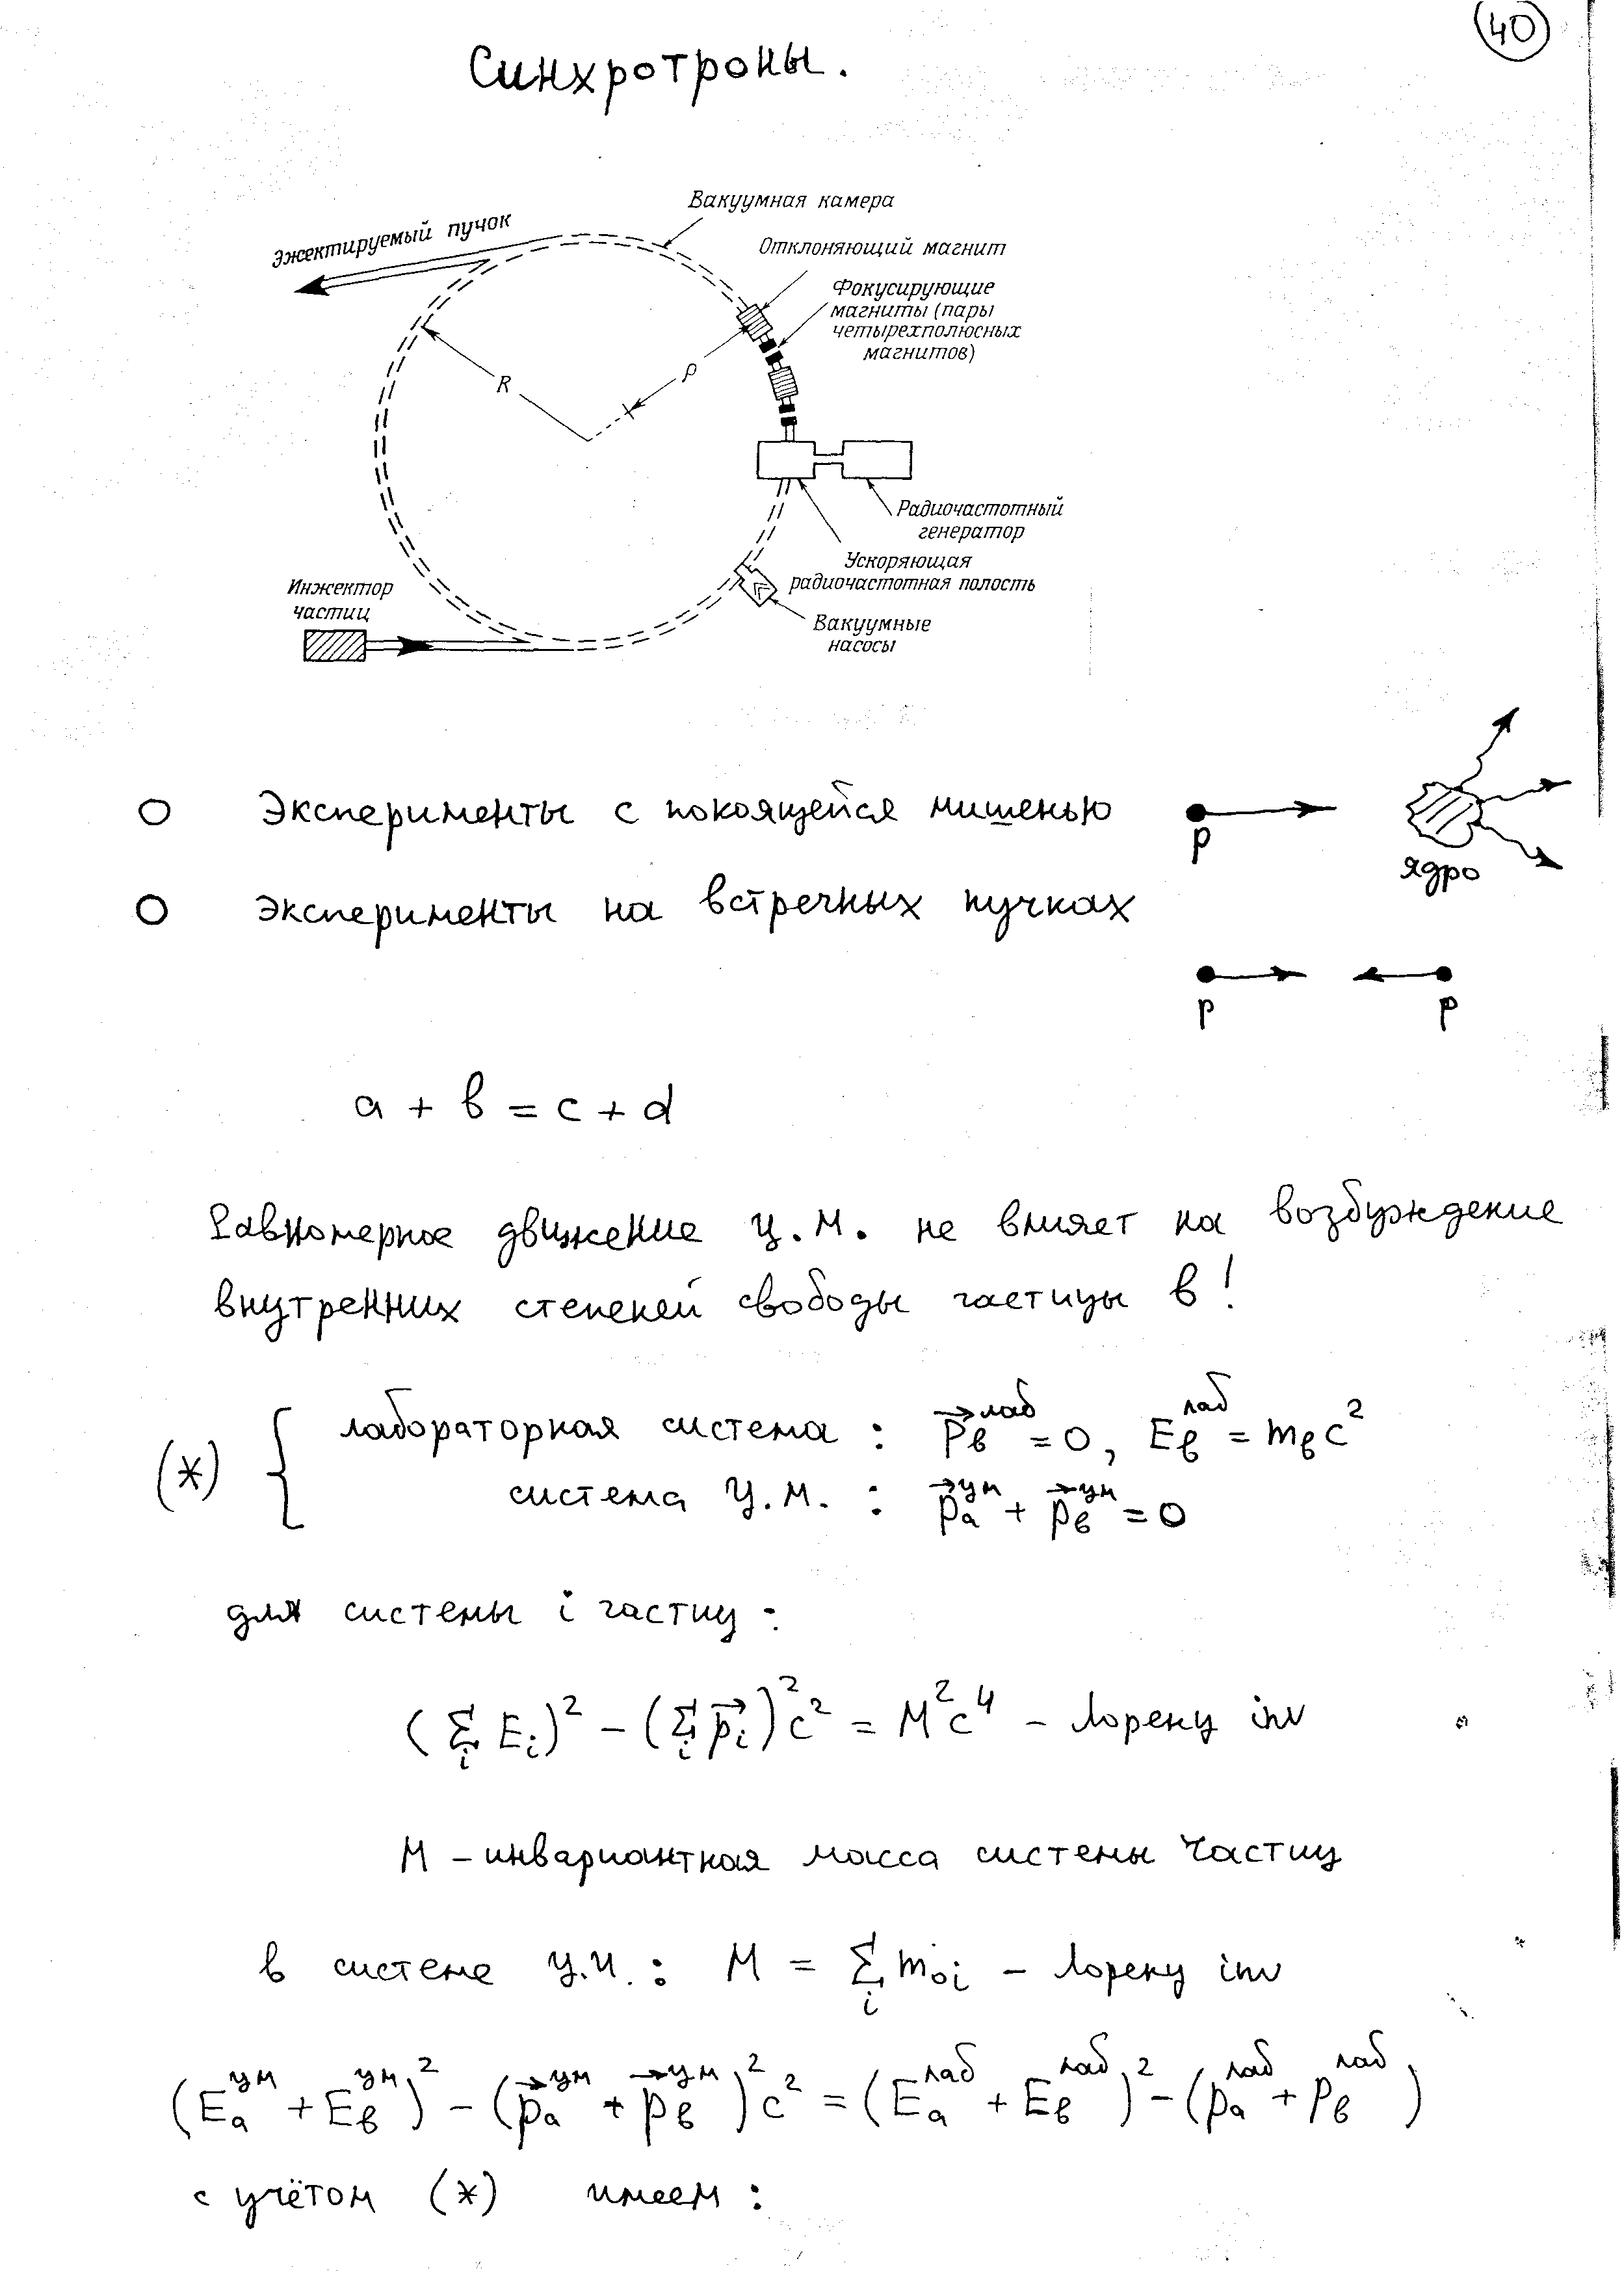 40
Синхротроны.
Вакуумная камера
Эжектируемый пучок
Отклоняющий магнит
Фокусирующие
магниты (пары
четырехполюсных
магнитов)
R
ρ
Радиочастотный
генератор
Ускоряющая
радиочастотная полость
Инжектор
частиц
Вакуумные
насосы
○ Эксперименты с покоящейся мишенью
p
ядро
○ Эксперименты на встречных пучках
p p
a + b = c + d
Равномерное движение ц.м. не влияет на возбуждение
внутренних степеней свободы частицы b!
(*) { лабораторная система : p⃗_b^лаб = 0, E_b^лаб = m_b c²
система ц.м. : p⃗_a^цм + p⃗_b^цм = 0
для системы i частиц :
(∑_i E_i)² − (∑_i p⃗_i)² c² = M² c⁴ – лоренц inv
M – инвариантная масса системы частиц
в системе ц.и. : M = ∑_i m_0i – лоренц inv
(E_a^цм + E_b^цм)² − (p⃗_a^цм + p⃗_b^цм)² c² = (E_a^лаб + E_b^лаб)² − (p_a^лаб + p_b^лаб)
с учётом (*) имеем :